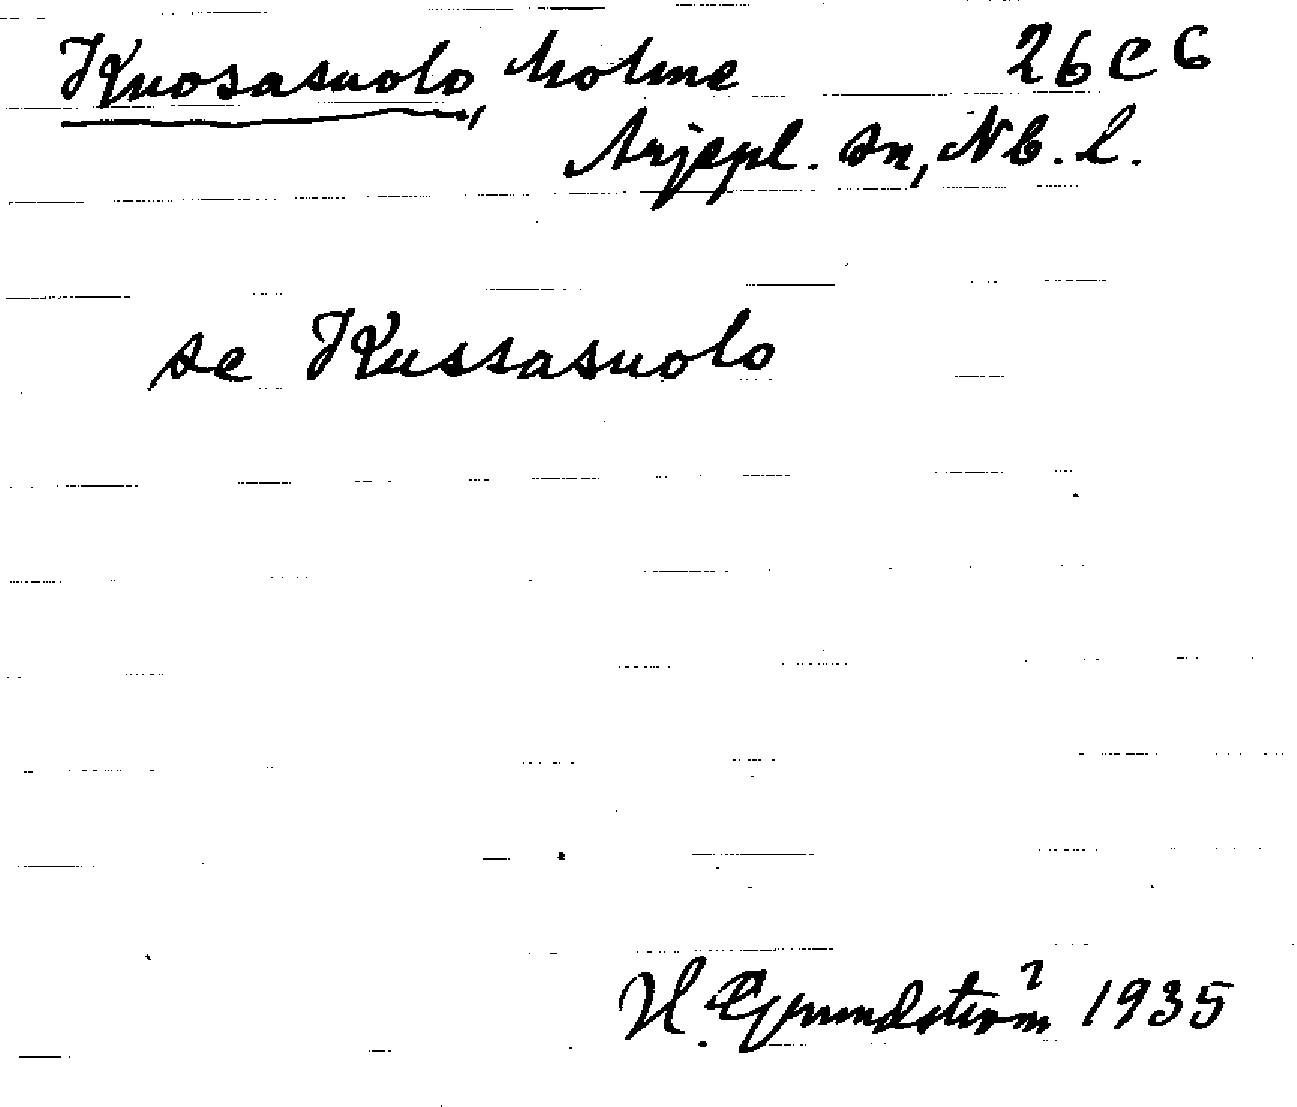 Kuosasuolo, holme 26 C 6
Arjepl. sn, Nb. L.
se Kussasuolo
H. Grundström 1935